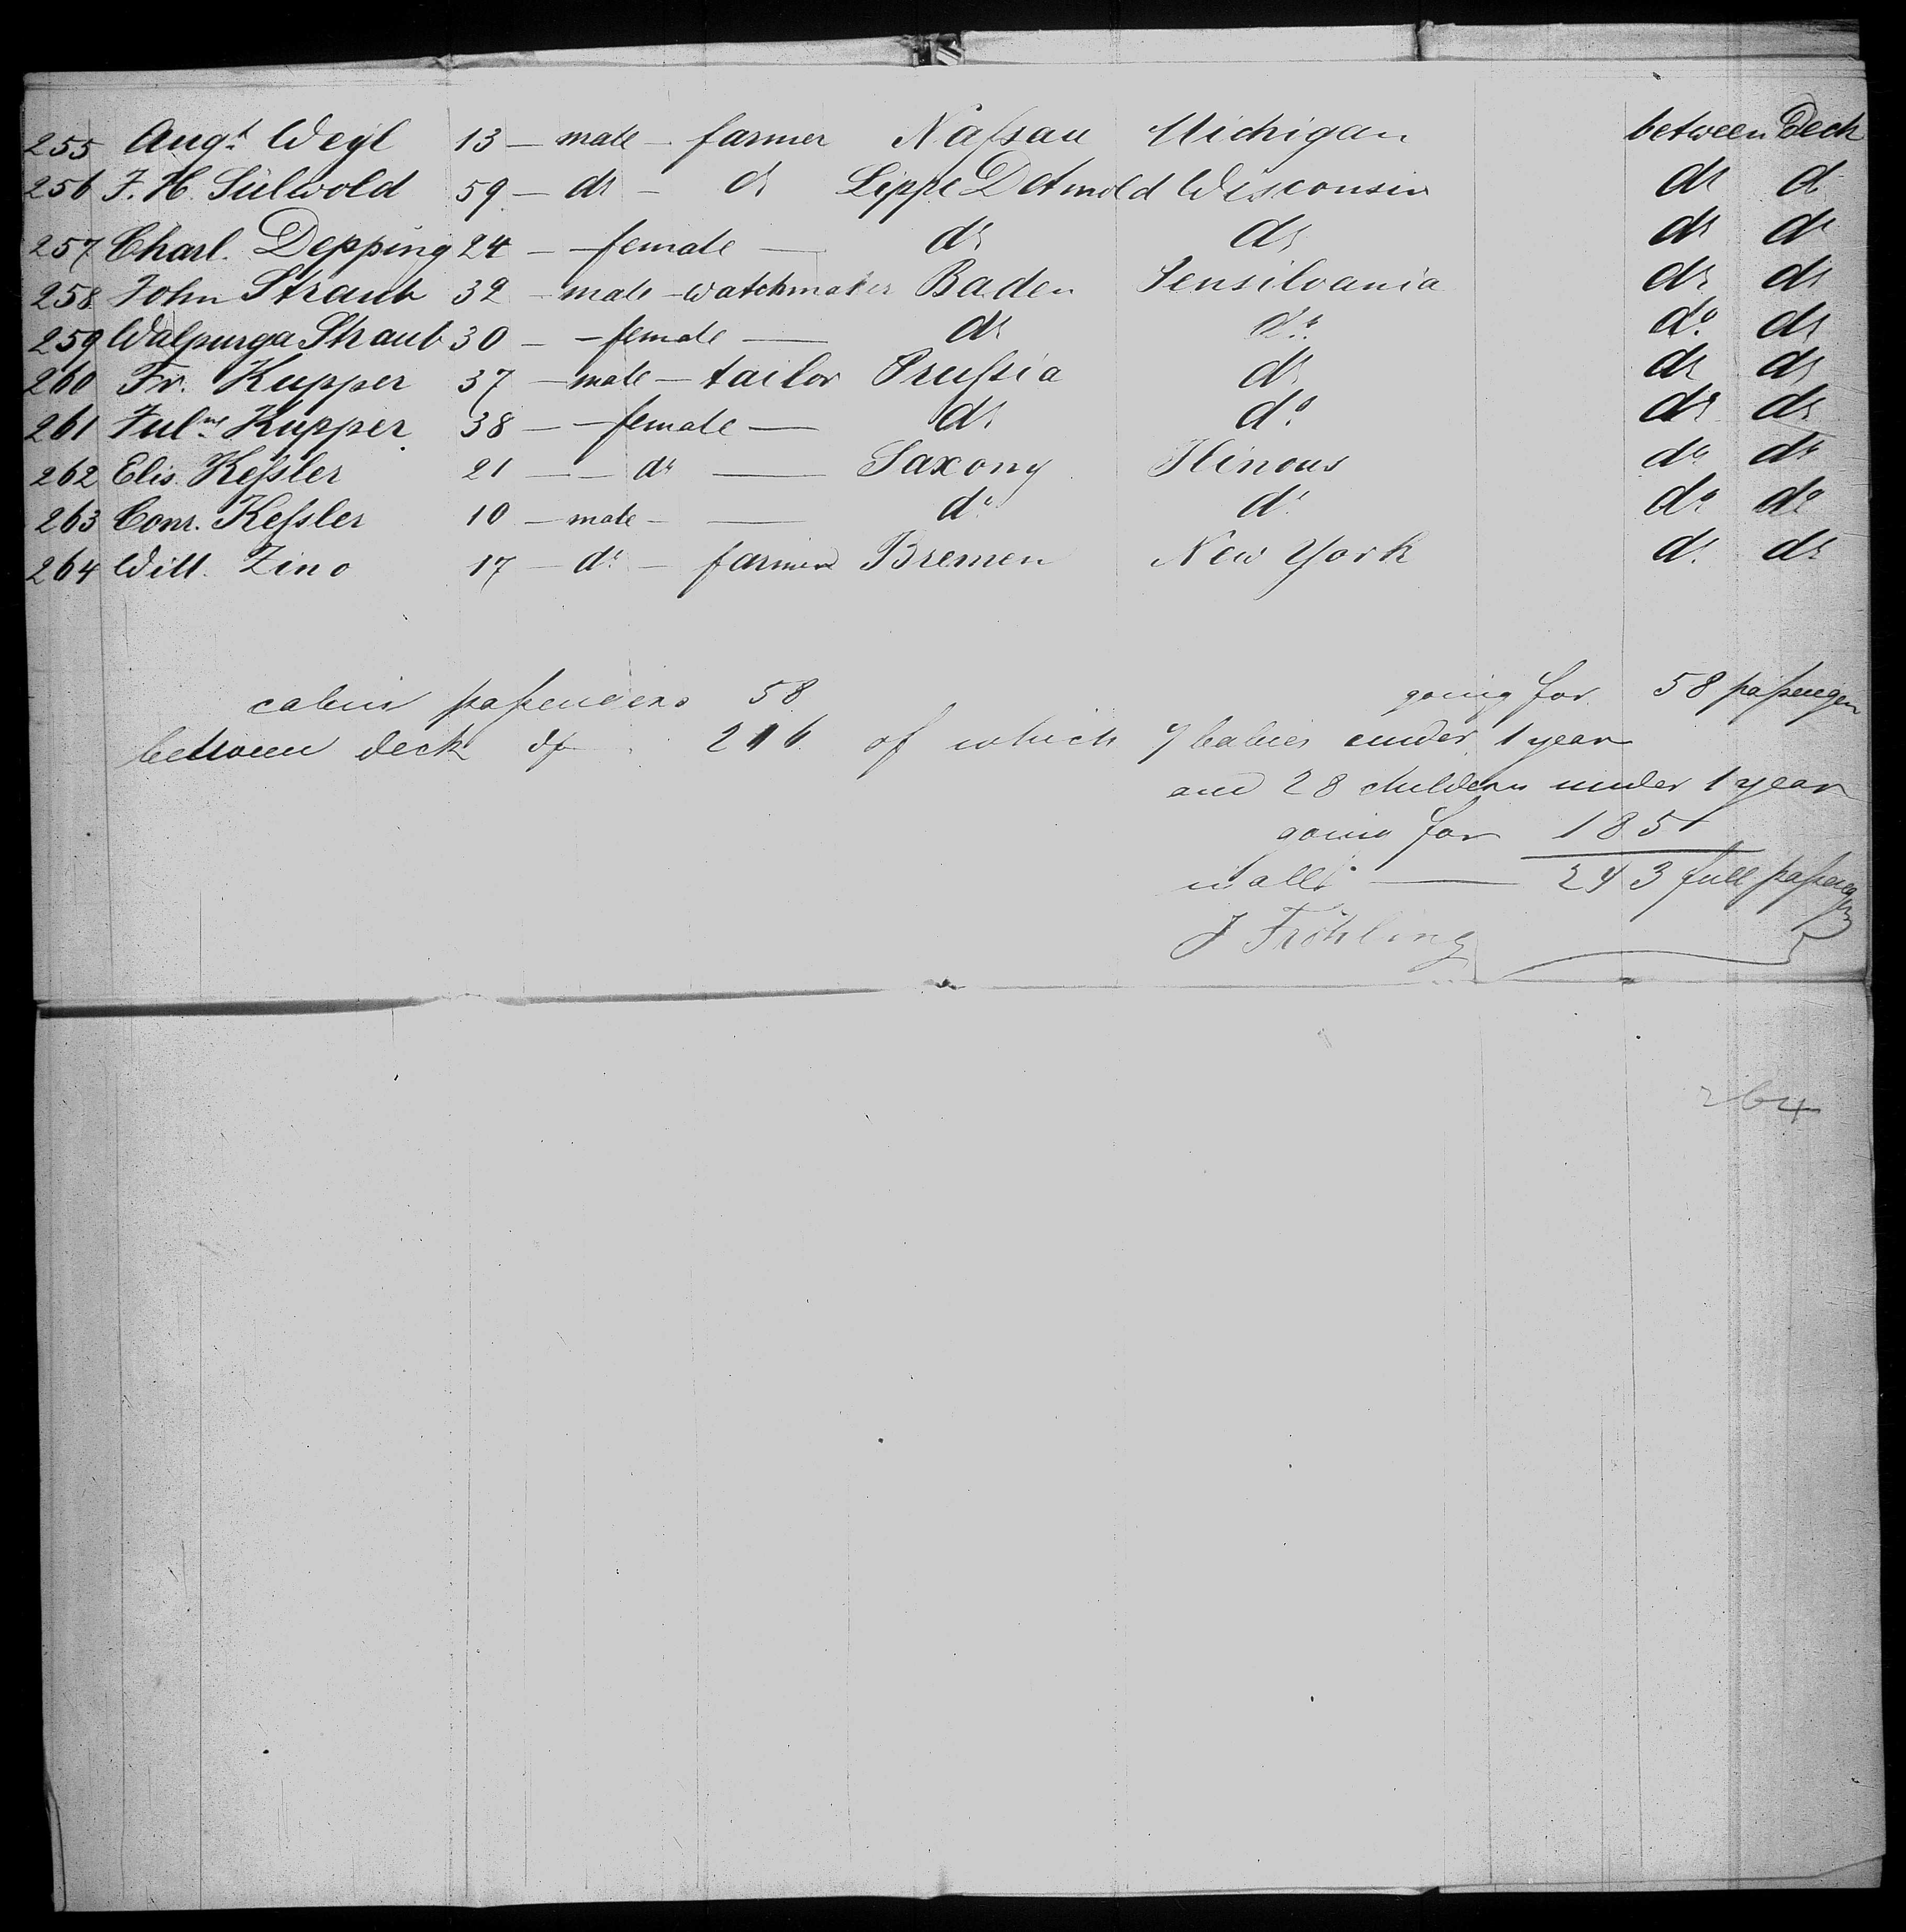 255 Augt. Weyl 13 — male — farmer Naſsau Michigan between Deck
256 F. H. Sülwold 59 — do — do Lippe Detmold Wisconsin do do
257 Charl. Depping 24 — female — do do do do
258 John Straub 32 — male — watchmaker Baden Pensilvania do do
259 Walpurga Straub 30 — female — do do do do
260 Fr. Kupper 37 — male — tailor Pruſsia do do do
261 Julne Kupper 38 — female — do do do do
262 Elis. Keſsler 21 — do — Saxony Ilinous do do
263 Conr. Keſsler 10 — male — do do do do
264 Will. Zino 17 — do — farmer Bremen New York do do
cabin paſsengers 58 going for 58 paſsenger
between deck do 206 of which 9 babies under 1 year
and 28 children under 1 year
going for 185
in all — 243 full paſsengers
J Fröhling
264